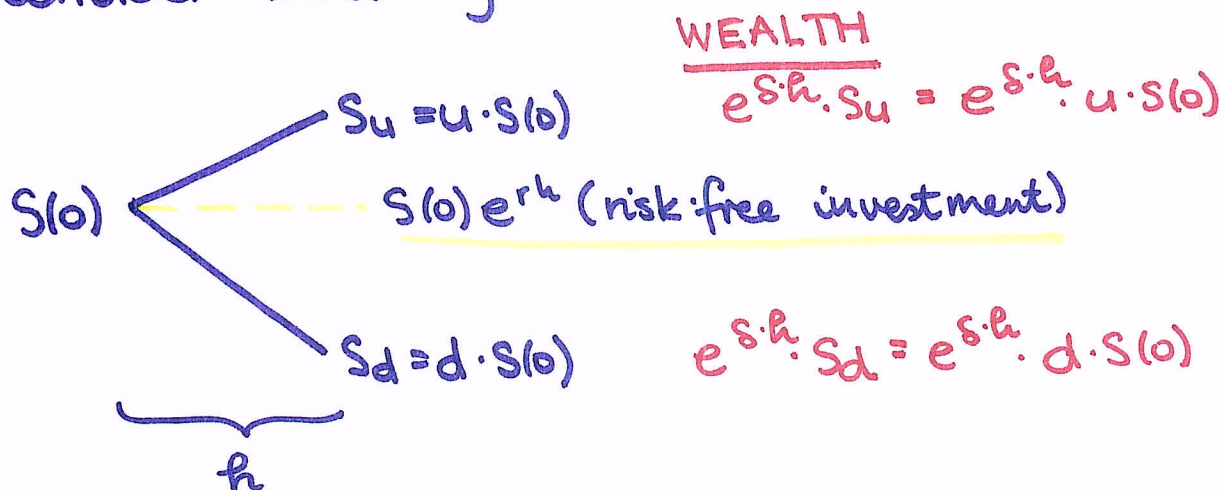 WEALTH
Su = u·S(0)
e^{δ·h}·Su = e^{δ·h}·u·S(0)
S(0)
S(0)e^{rh} (risk-free investment)
Sd = d·S(0)
e^{δ·h}·Sd = e^{δ·h}·d·S(0)
h